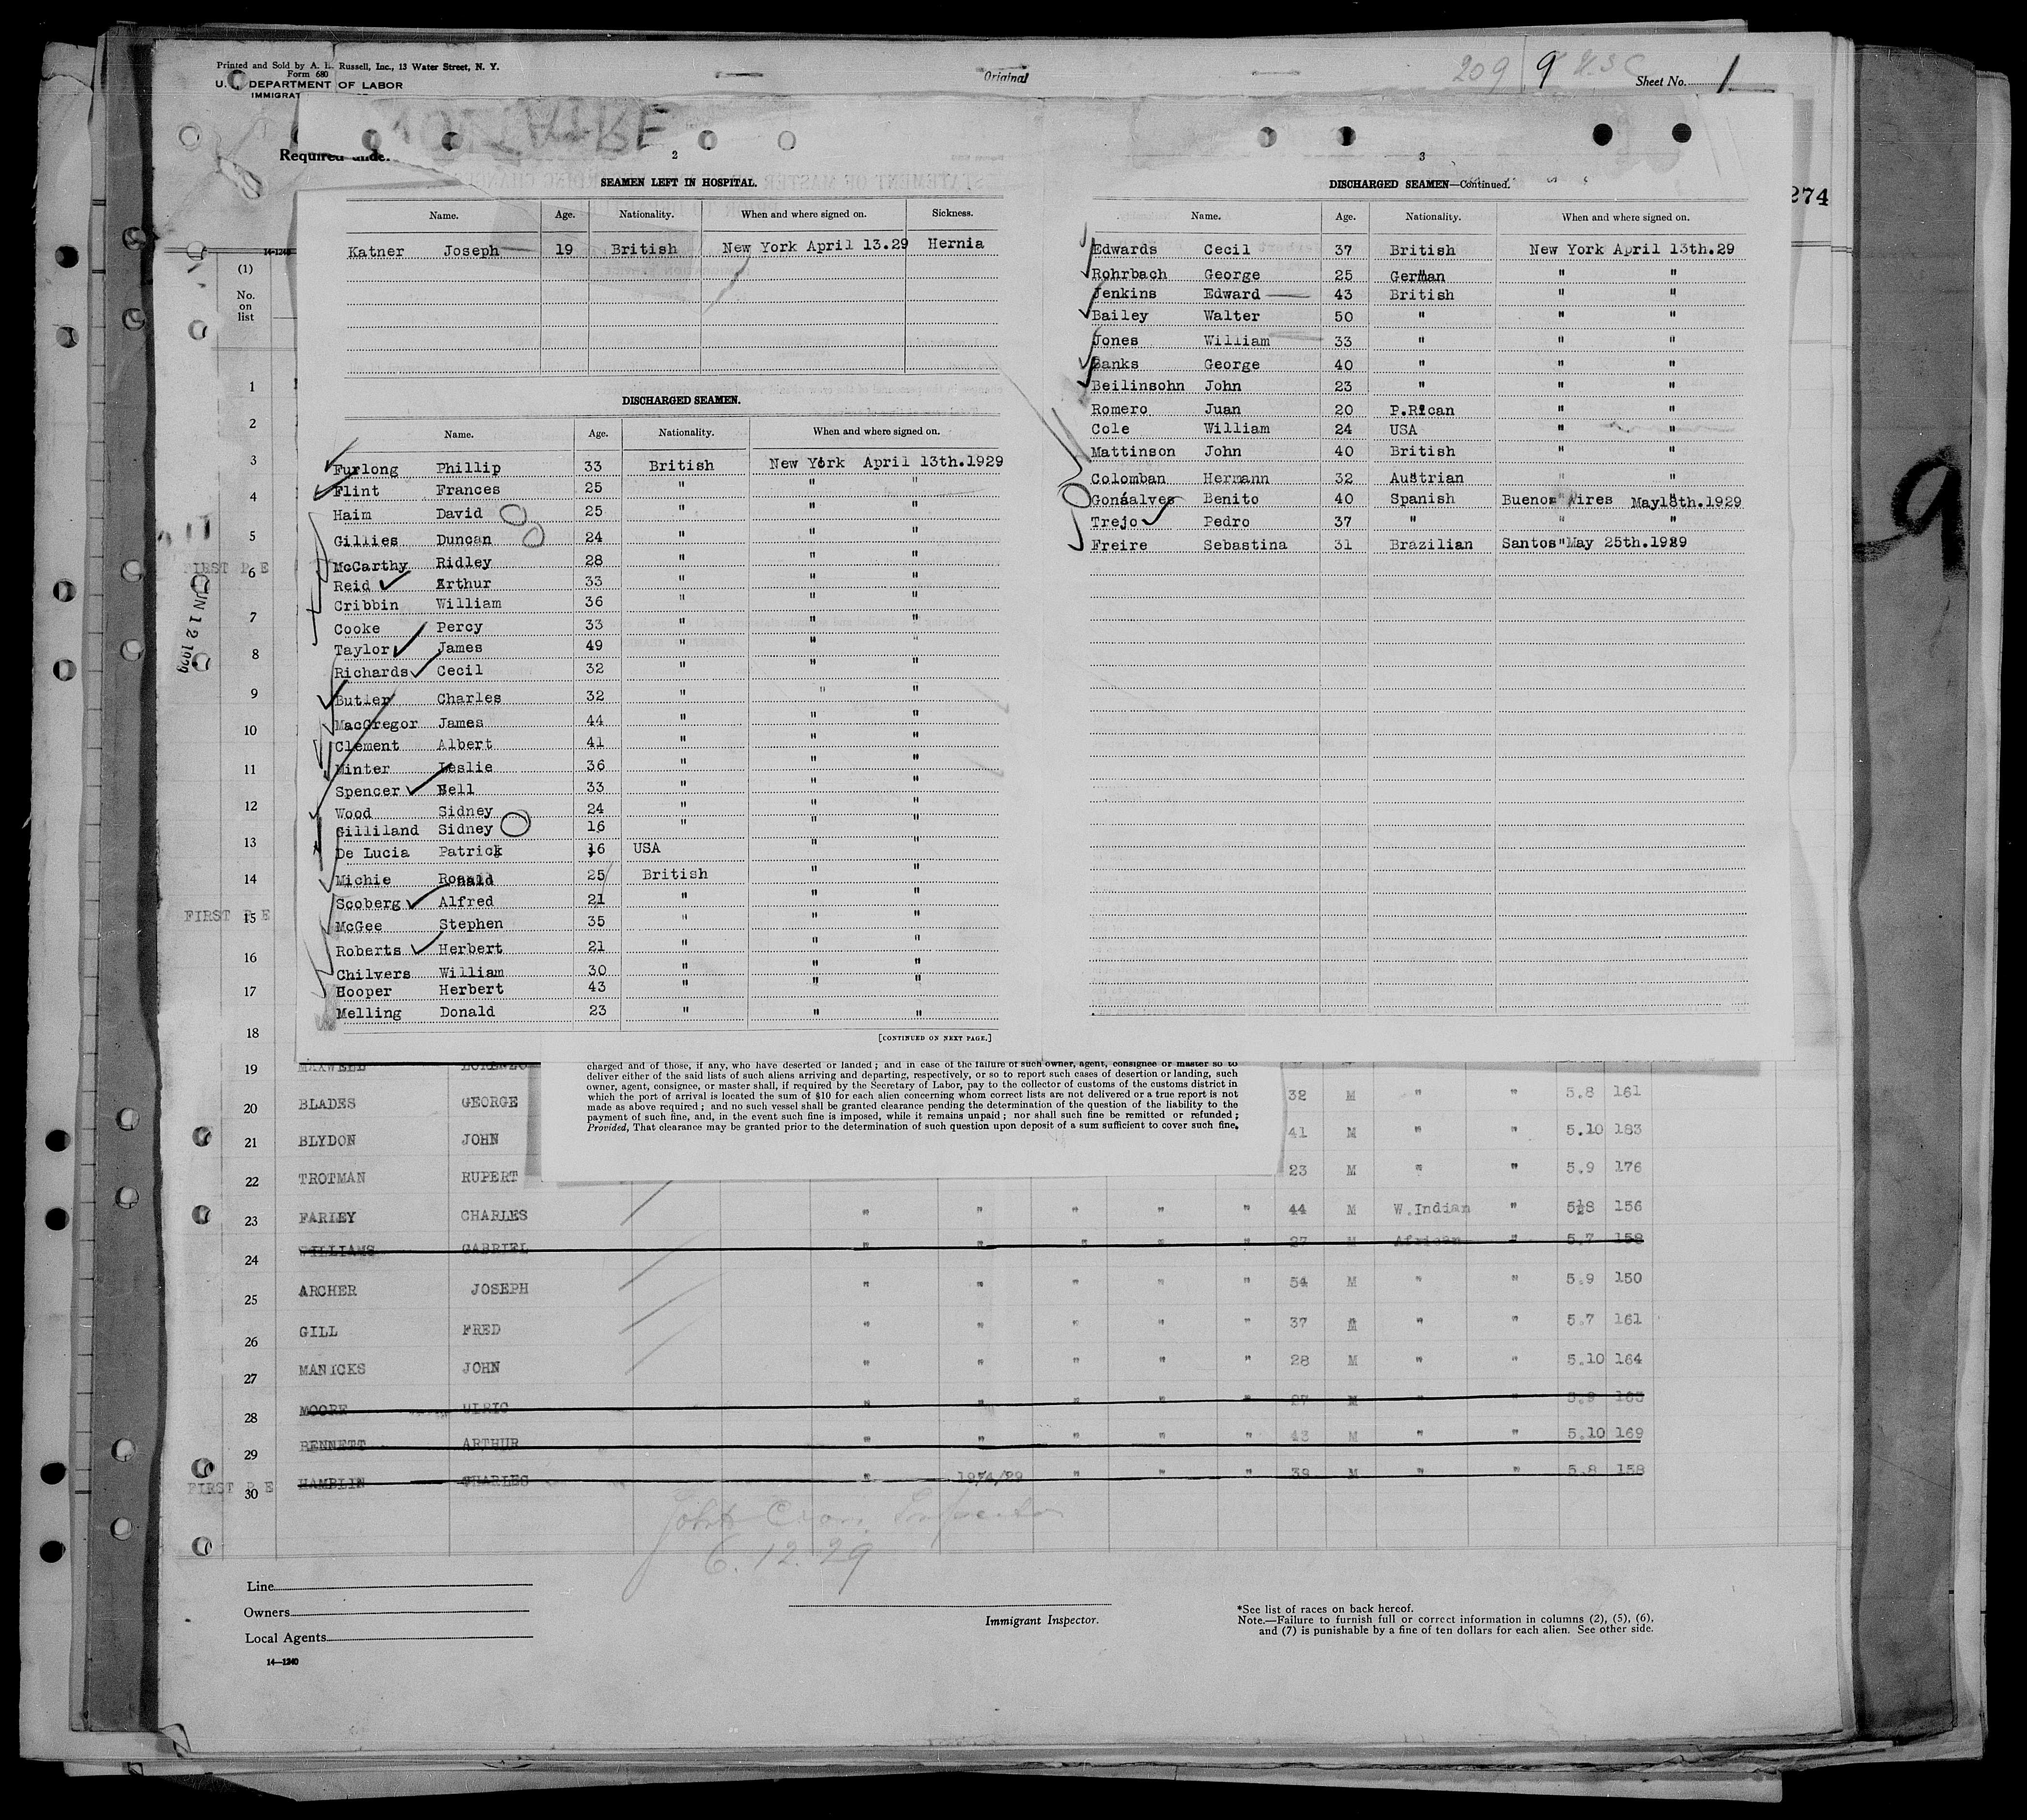 Printed and Sold by A. L. Russell, Inc., 13 Water Street, N. Y.
Form 680
U. DEPARTMENT OF LABOR
IMMIGRAT
Original
209 9
Sheet No. 1
Required unde
274
14-1240
(1)
No.
on
list
2
SEAMEN LEFT IN HOSPITAL.
Name. Age. Nationality. When and where signed on. Sickness.
Katner Joseph 19 British New York April 13.29 Hernia
DISCHARGED SEAMEN.
Name. Age. Nationality. When and where signed on.
Furlong Phillip 33 British New York April 13th.1929
Flint Frances 25 " " "
Haim David 25 " " "
Gillies Duncan 24 " " "
McCarthy Ridley 28 " " "
Reid Arthur 33 " " "
Cribbin William 36 " " "
Cooke Percy 33 " " "
Taylor James 49 " " "
Richards Cecil 32 " " "
Butler Charles 32 " " "
MacGregor James 44 " " "
Clement Albert 41 " " "
Minter Leslie 36 " " "
Spencer Nell 33 " " "
Wood Sidney 24 " " "
Gilliland Sidney 16 " " "
De Lucia Patrick 16 USA " "
Michie Ronald 25 British " "
Scoberg Alfred 21 " " "
McGee Stephen 35 " " "
Roberts Herbert 21 " " "
Chilvers William 30 " " "
Hooper Herbert 43 " " "
Melling Donald 23 " " "
[CONTINUED ON NEXT PAGE.]
3
DISCHARGED SEAMEN—Continued.
Name. Age. Nationality. When and where signed on.
Edwards Cecil 37 British New York April 13th.29
Rohrbach George 25 German " "
Jenkins Edward 43 British " "
Bailey Walter 50 " " "
Jones William 33 " " "
Banks George 40 " " "
Beilinsohn John 23 " " "
Romero Juan 20 P.Rican " "
Cole William 24 USA " "
Mattinson John 40 British " "
Colomban Hermann 32 Austrian " "
Gonsalves Benito 40 Spanish Buenos Aires May18th.1929
Trejo Pedro 37 " " "
Freire Sebastina 31 Brazilian Santos May 25th.1929
charged and of those, if any, who have deserted or landed; and in case of the failure of such owner, agent, consignee or master so to
deliver either of the said lists of such aliens arriving and departing, respectively, or so to report such cases of desertion or landing, such
owner, agent, consignee, or master shall, if required by the Secretary of Labor, pay to the collector of customs of the customs district in
which the port of arrival is located the sum of $10 for each alien concerning whom correct lists are not delivered or a true report is not
made as above required; and no such vessel shall be granted clearance pending the determination of the question of the liability to the
payment of such fine, and, in the event such fine is imposed, while it remains unpaid; nor shall such fine be remitted or refunded;
Provided, That clearance may be granted prior to the determination of such question upon deposit of a sum sufficient to cover such fine.
1
2
3
4
5
FIRST P E
6
JUN 12 1929
7
8
9
10
11
12
13
14
FIRST P E
15
16
17
18
19 MAXWELL LORENZO
20 BLADES GEORGE 32 M " " 5.8 161
21 BLYDON JOHN 41 M " " 5.10 183
22 TROTMAN RUPERT 23 M " " 5.9 176
23 FARLEY CHARLES " " " " " 44 M W.Indian " 5½8 156
24 WILLIAMS GABRIEL " " " " " 27 M African " 5.7 158
25 ARCHER JOSEPH " " " " " 54 M " " 5.9 150
26 GILL FRED " " " " " 37 M " " 5.7 161
27 MANICKS JOHN " " " " " 28 M " " 5.10 164
28 MOORE ULRIC " " " " " 27 M " " 5.9 163
29 BENNETT ARTHUR " " " " " 43 M " " 5.10 169
FIRST P E
30 HAMBLIN CHARLES " 12/4/29 " " " 39 M " " 5.8 158
9
John Inspector
6.12.29
Line
Owners
Local Agents
14—1240
Immigrant Inspector.
*See list of races on back hereof.
Note.—Failure to furnish full or correct information in columns (2), (5), (6),
and (7) is punishable by a fine of ten dollars for each alien. See other side.